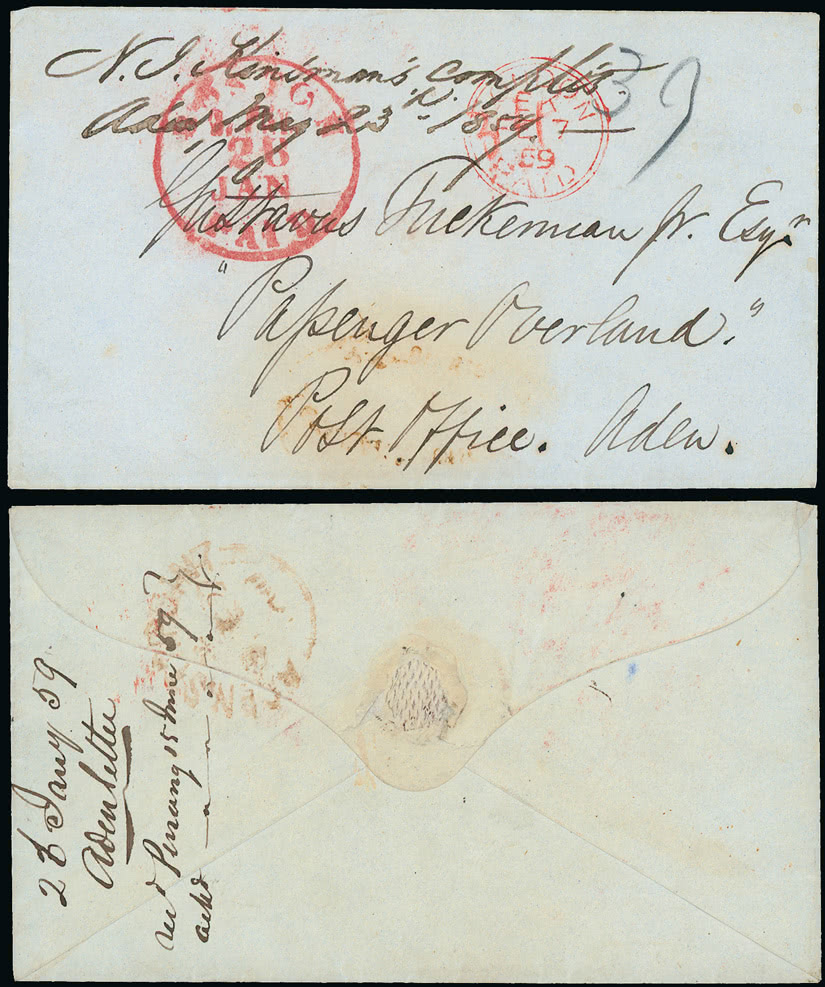 N. J. Kinsman's complts.
Aden May 23d. 1859
39
26
JAN
59
PAID
Gustavus Tuckerman Jr. Esqr
"Passenger Overland."
Post Office. Aden.
26 Jany 59
Aden letter
recd Penang 15 June 59